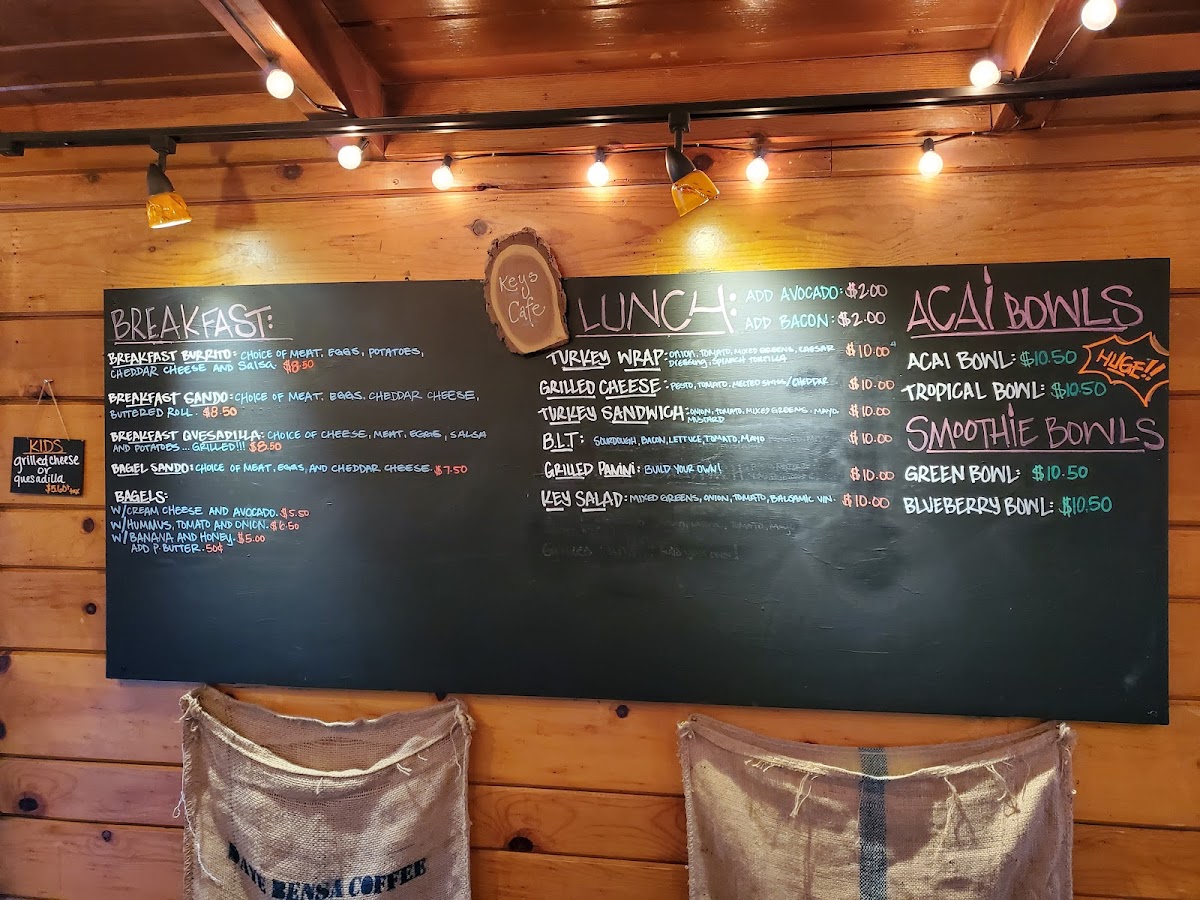 Keys
Cafe
BREAKFAST:
BREAKFAST BURRITO: CHOICE OF MEAT. EGGS, POTATOES,
CHEDDAR CHEESE AND SALSA. $8.50
BREAKFAST SANDO: CHOICE OF MEAT, EGGS. CHEDDAR CHEESE,
BUTTERED ROLL. $8.50
BREAKFAST QUESADILLA: CHOICE OF CHEESE, MEAT, EGGS, SALSA
AND POTATOES... GRILLED!!! $8.50
BAGEL SANDO: CHOICE OF MEAT, EGGS, AND CHEDDAR CHEESE. $7.50
BAGELS:
W/CREAM CHEESE AND AVOCADO. $5.50
W/HUMMUS, TOMATO AND ONION. $6.50
W/BANANA AND HONEY. $5.00
ADD P. BUTTER. 50¢
KIDS
grilled cheese
or
quesadilla
$5.60+tax
LUNCH:
ADD AVOCADO: $2.00
ADD BACON: $2.00
TURKEY WRAP: ONION, TOMATO, MIXED GREENS, CAESAR
DRESSING, SPINACH TORTILLA $10.00
GRILLED CHEESE: PESTO, TOMATO, MELTED SWISS/CHEDDAR $10.00
TURKEY SANDWICH: ONION, TOMATO, MIXED GREENS, MAYO
MUSTARD $10.00
B.L.T: SOURDOUGH, BACON, LETTUCE, TOMATO, MAYO $10.00
GRILLED PANINI: BUILD YOUR OWN! $10.00
KEY SALAD: MIXED GREENS, ONION, TOMATO, BALSAMIC VIN. $10.00
ACAI BOWLS
ACAI BOWL: $10.50
HUGE!!
TROPICAL BOWL: $10.50
SMOOTHIE BOWLS
GREEN BOWL: $10.50
BLUEBERRY BOWL: $10.50
DAYE BENSA COFFEE